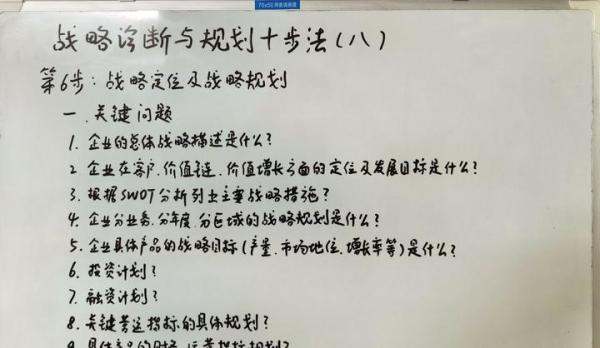 战略诊断与规划十步法(八)
第6步:战略定位及战略规划
一、关键问题
1. 企业的总体战略描述是什么?
2 企业在客户、价值链、价值增长方面的定位及发展目标是什么?
3. 根据SWOT分析列出主要战略措施?
4. 企业分业务、分年度、分区域的战略规划是什么?
5. 企业具体产品的战略目标(产量、市场地位、增长率等)是什么?
6. 投资计划?
7. 融资计划?
8. 关键营运指标的具体规划?